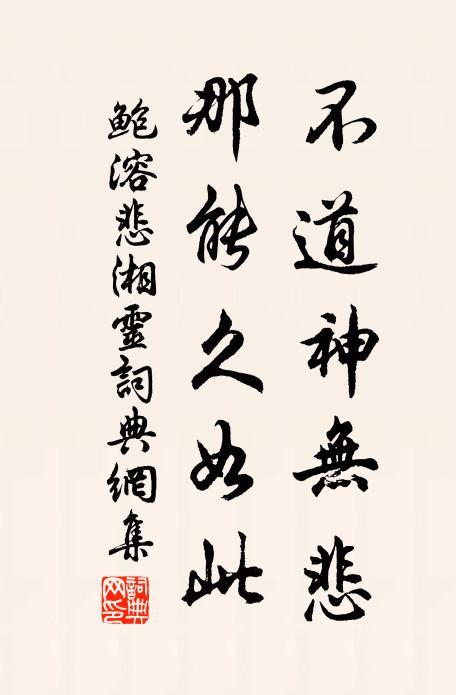 不道神無悲
那能久如此
鮑溶悲湘靈詞典網集
詞典網印